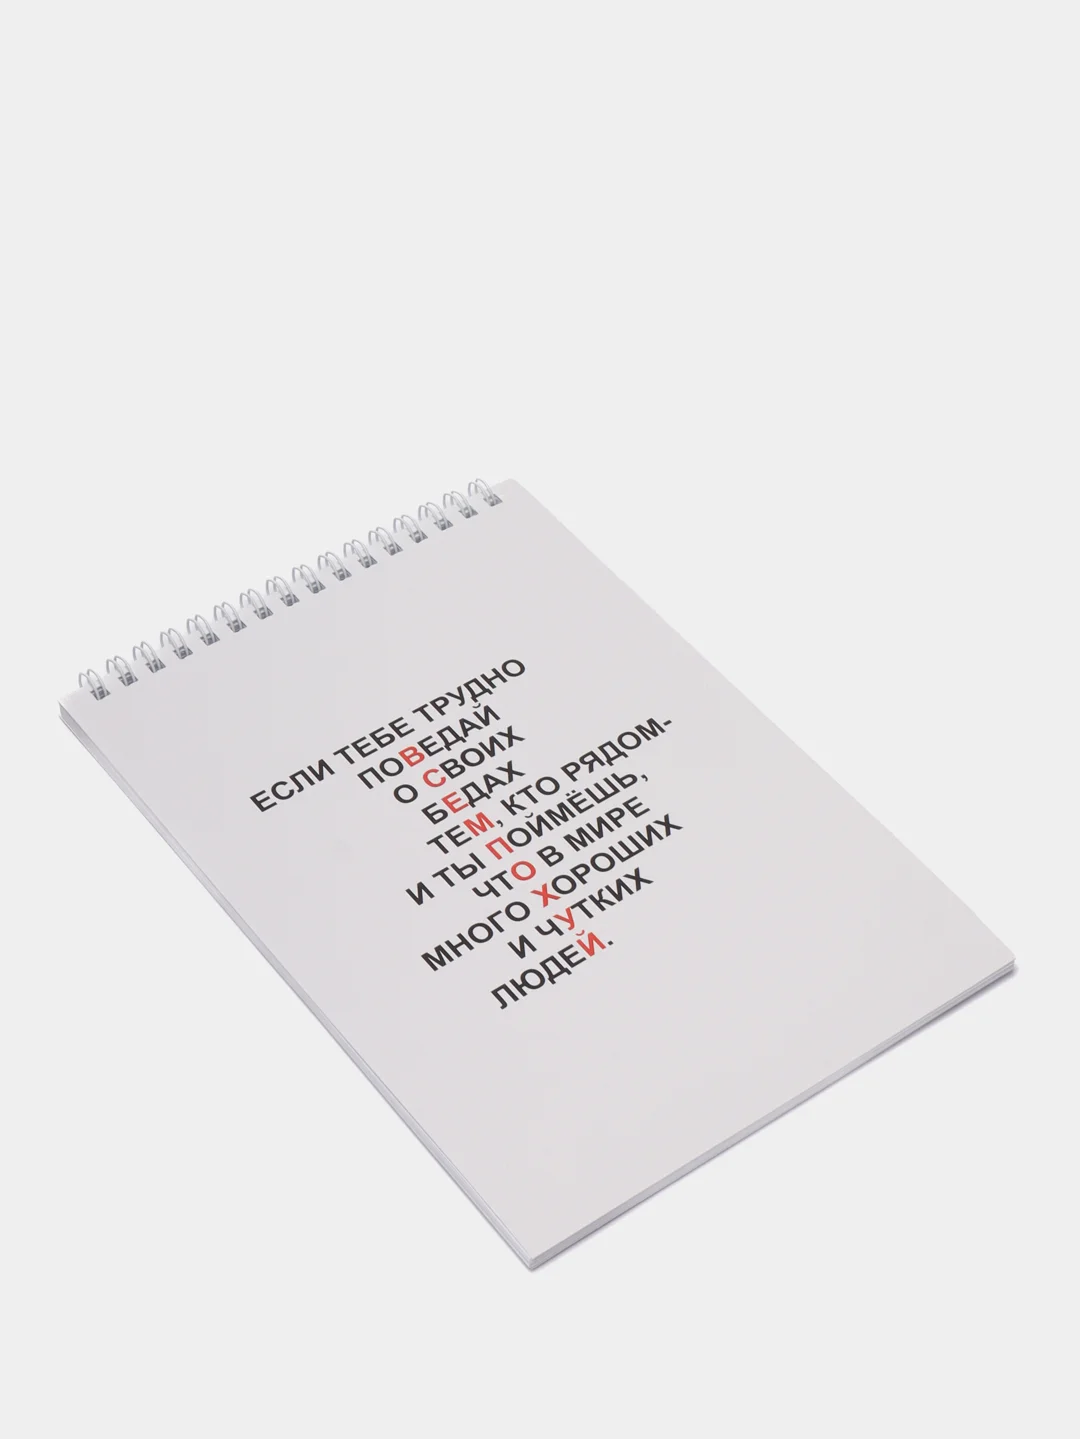 ЕСЛИ ТЕБЕ ТРУДНО
ПОВЕДАЙ
О СВОИХ
БЕДАХ
ТЕМ, КТО РЯДОМ-
И ТЫ ПОЙМЁШЬ,
ЧТО В МИРЕ
МНОГО ХОРОШИХ
И ЧУТКИХ
ЛЮДЕЙ.